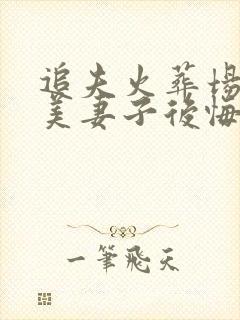 追夫火葬場
美妻子後悔
一筆飛天